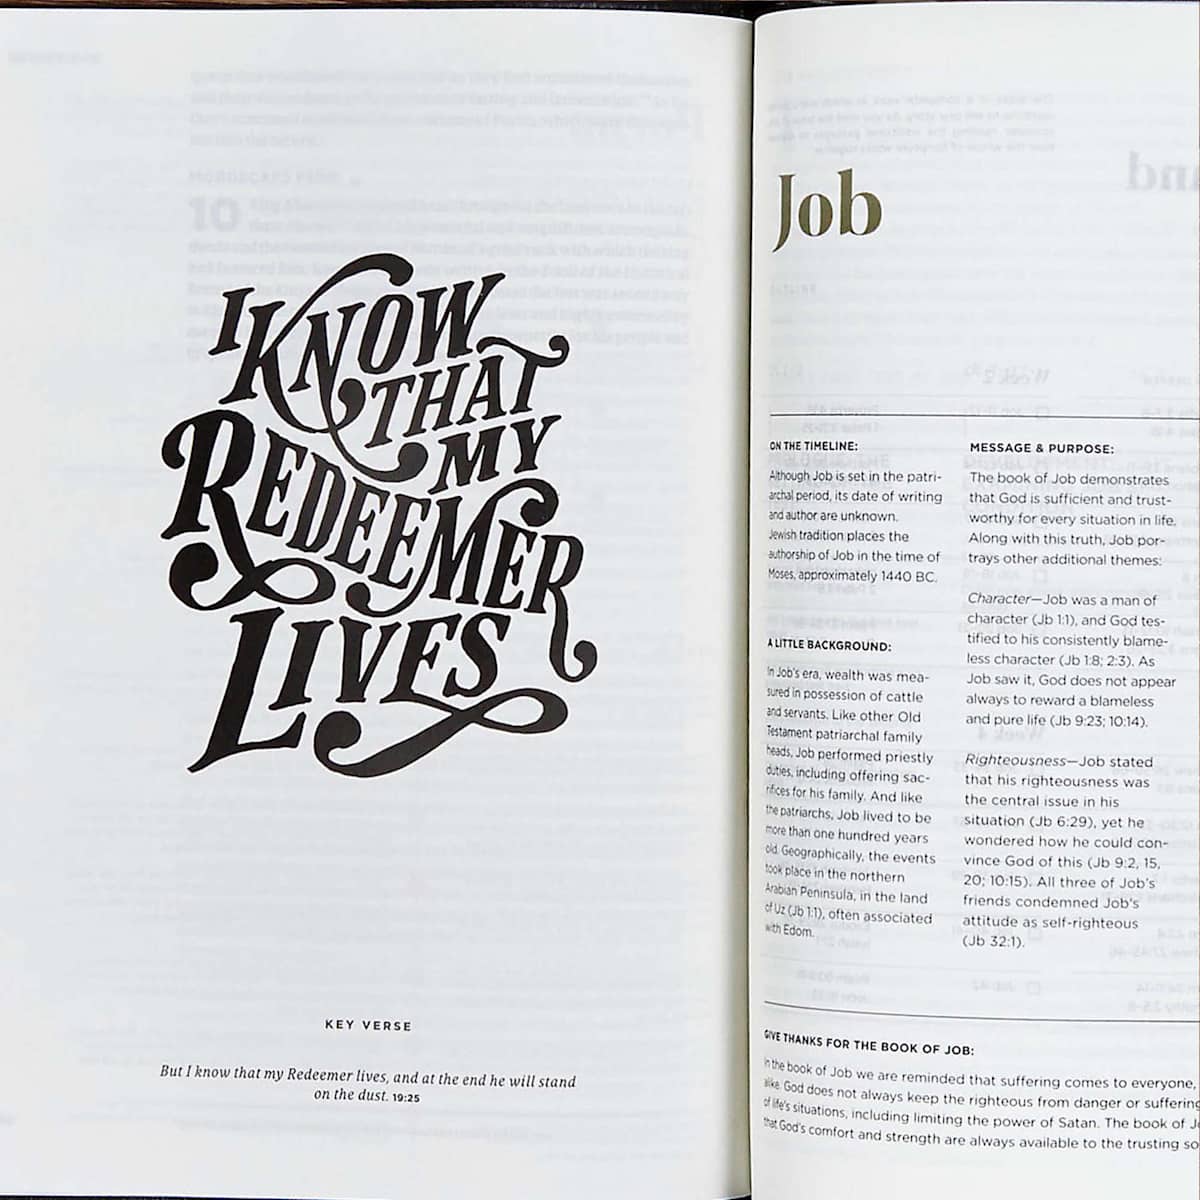 I KNOW
THAT
MY
REDEEMER
LIVES
KEY VERSE
But I know that my Redeemer lives, and at the end he will stand
on the dust. 19:25
Job
ON THE TIMELINE:
Although Job is set in the patri-
archal period, its date of writing
and author are unknown.
Jewish tradition places the
authorship of Job in the time of
Moses, approximately 1440 BC.
A LITTLE BACKGROUND:
In Job's era, wealth was mea-
sured in possession of cattle
and servants. Like other Old
Testament patriarchal family
heads, Job performed priestly
duties, including offering sac-
rifices for his family. And like
the patriarchs, Job lived to be
more than one hundred years
old. Geographically, the events
took place in the northern
Arabian Peninsula, in the land
of Uz (Jb 1:1), often associated
with Edom.
MESSAGE & PURPOSE:
The book of Job demonstrates
that God is sufficient and trust-
worthy for every situation in life.
Along with this truth, Job por-
trays other additional themes:
Character—Job was a man of
character (Jb 1:1), and God tes-
tified to his consistently blame-
less character (Jb 1:8; 2:3). As
Job saw it, God does not appear
always to reward a blameless
and pure life (Jb 9:23; 10:14).
Righteousness—Job stated
that his righteousness was
the central issue in his
situation (Jb 6:29), yet he
wondered how he could con-
vince God of this (Jb 9:2, 15,
20; 10:15). All three of Job's
friends condemned Job's
attitude as self-righteous
(Jb 32:1).
GIVE THANKS FOR THE BOOK OF JOB:
In the book of Job we are reminded that suffering comes to everyone,
alike. God does not always keep the righteous from danger or suffering
of life's situations, including limiting the power of Satan. The book of
that God's comfort and strength are always available to the trusting